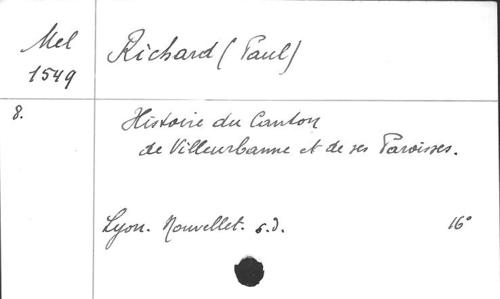 Mel
1549
Richard (Paul)
8.
Histoire du Canton
de Villeurbanne et de ses Paroisses.
Lyon. Nouvellet. s.d. 16°